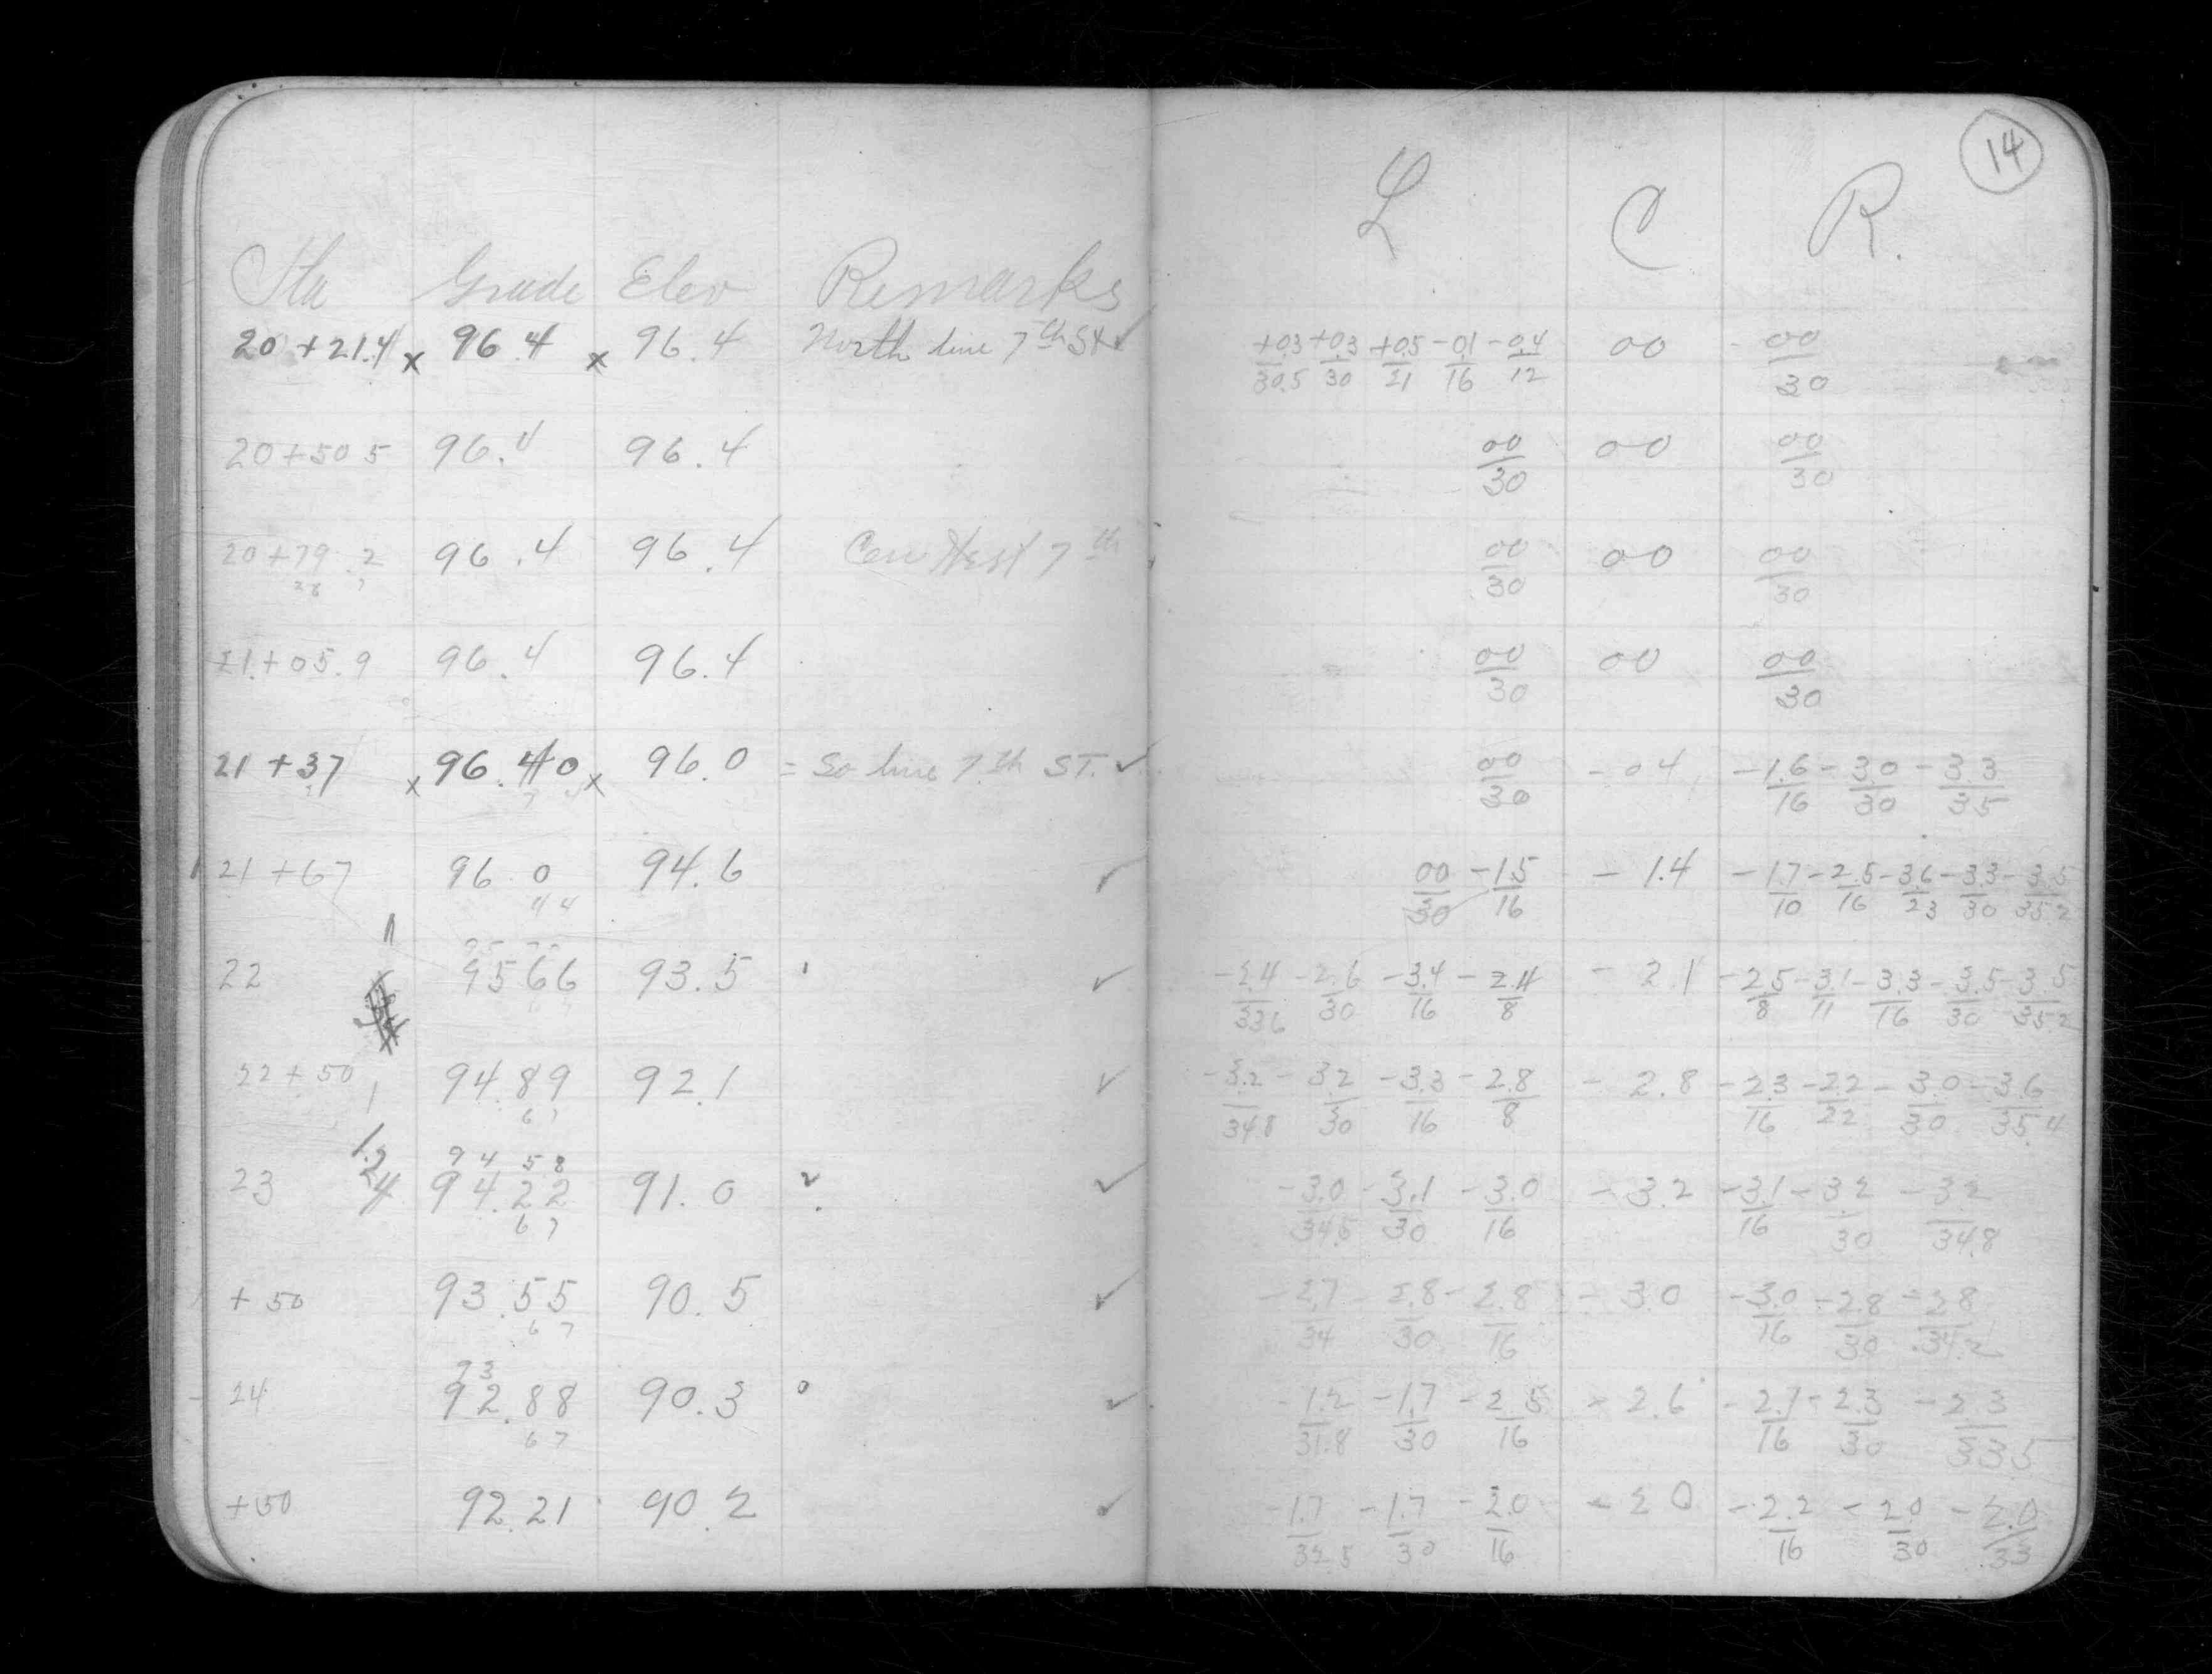 14
L C R.
Sta Grade Elev Remarks
20 + 21.4 x 96.4 x 96.4 North line 7th St ✓ +0.3/30.5 +0.3/30 +0.5/21 -0.1/16 -0.4/12 00 00/30
20+50 5 96.4 96.4 00/30 00 00/30
20+79.2 96.4 96.4 7th 00/30 00 00/30
28 7
21+05.9 96.4 96.4 00/30 00 00/30
21 +37 x 96.40 x 96.0 = So line 7th ST. ✓ 00/30 -0.4 -1.6/16 -3.0/30 -3.3/35
21 +67 96 0 94.6 ✓ 00/30 -1.5/16 -1.4 -1.7/10 -2.5/16 -3.6/23 -3.3/30 -3.5/35.2
44
22 95 66 93.5 ✓ -2.4/33.6 -2.6/30 -3.4/16 -2.4/8 -2.1 -2.5/8 -3.1/11 -3.3/16 -3.5/30 -3.5/35.2
22+50 94.89 92.1 ✓ -3.2/34.8 -3.2/30 -3.3/16 -2.8/8 -2.8 -2.3/16 -2.2/22 -3.0/30 -3.6/35.4
67
94 58
23 94.22 91.0 ✓ -3.0/34.5 -3.1/30 -3.0/16 -3.2 -3.1/16 -3.2/30 -3.2/34.8
67
+50 93.55 90.5 ✓ -2.7/34 -2.8/30 -2.8/16 -3.0 -3.0/16 -2.8/30 -2.8/34.2
67
93
24 92.88 90.3 ✓ -1.2/31.8 -1.7/30 -2.5/16 -2.6 -2.1/16 -2.3/30 -2.3/33.5
67
+50 92.21 90.2 ✓ -1.7/32.5 -1.7/30 -2.0/16 -2.0 -2.2/16 -2.0/30 -2.0/33